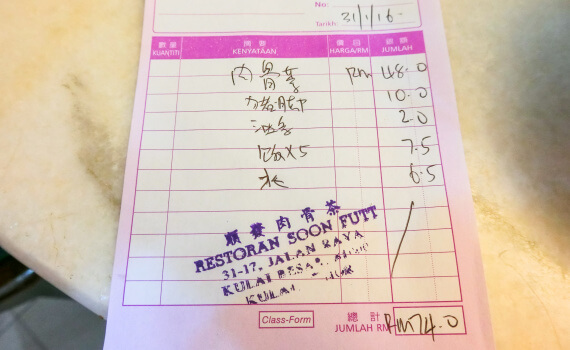 No:
Tarikh: 31/1/16
數量 摘要 價目 總額
KUANTITI KENYATAAN HARGA/RM JUMLAH
肉骨茶 RM 48.0
猪脚 10.0
油条 2.0
饭X5 7.5
水 6.5
順發肉骨茶
RESTORAN SOON FUTT
31-17, JALAN RAYA
KULAI BESAR
KULAI
總計
Class-Form JUMLAH RM RM74.0